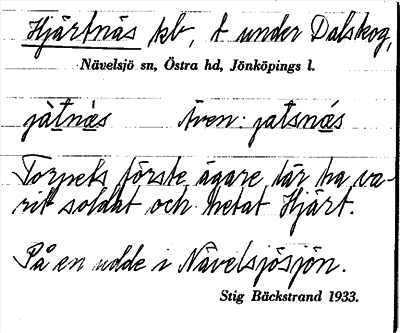 Hjärtnäs kb, t under Dalskog,
Nävelsjö sn, Östra hd, Jönköpings l.
jàtnæs Även: jatsnæs
Torpets förste ägare lär ha va-
rit soldat och hetat Hjärt.
På en udde i Nävelsjösjön.
Stig Bäckstrand 1933.